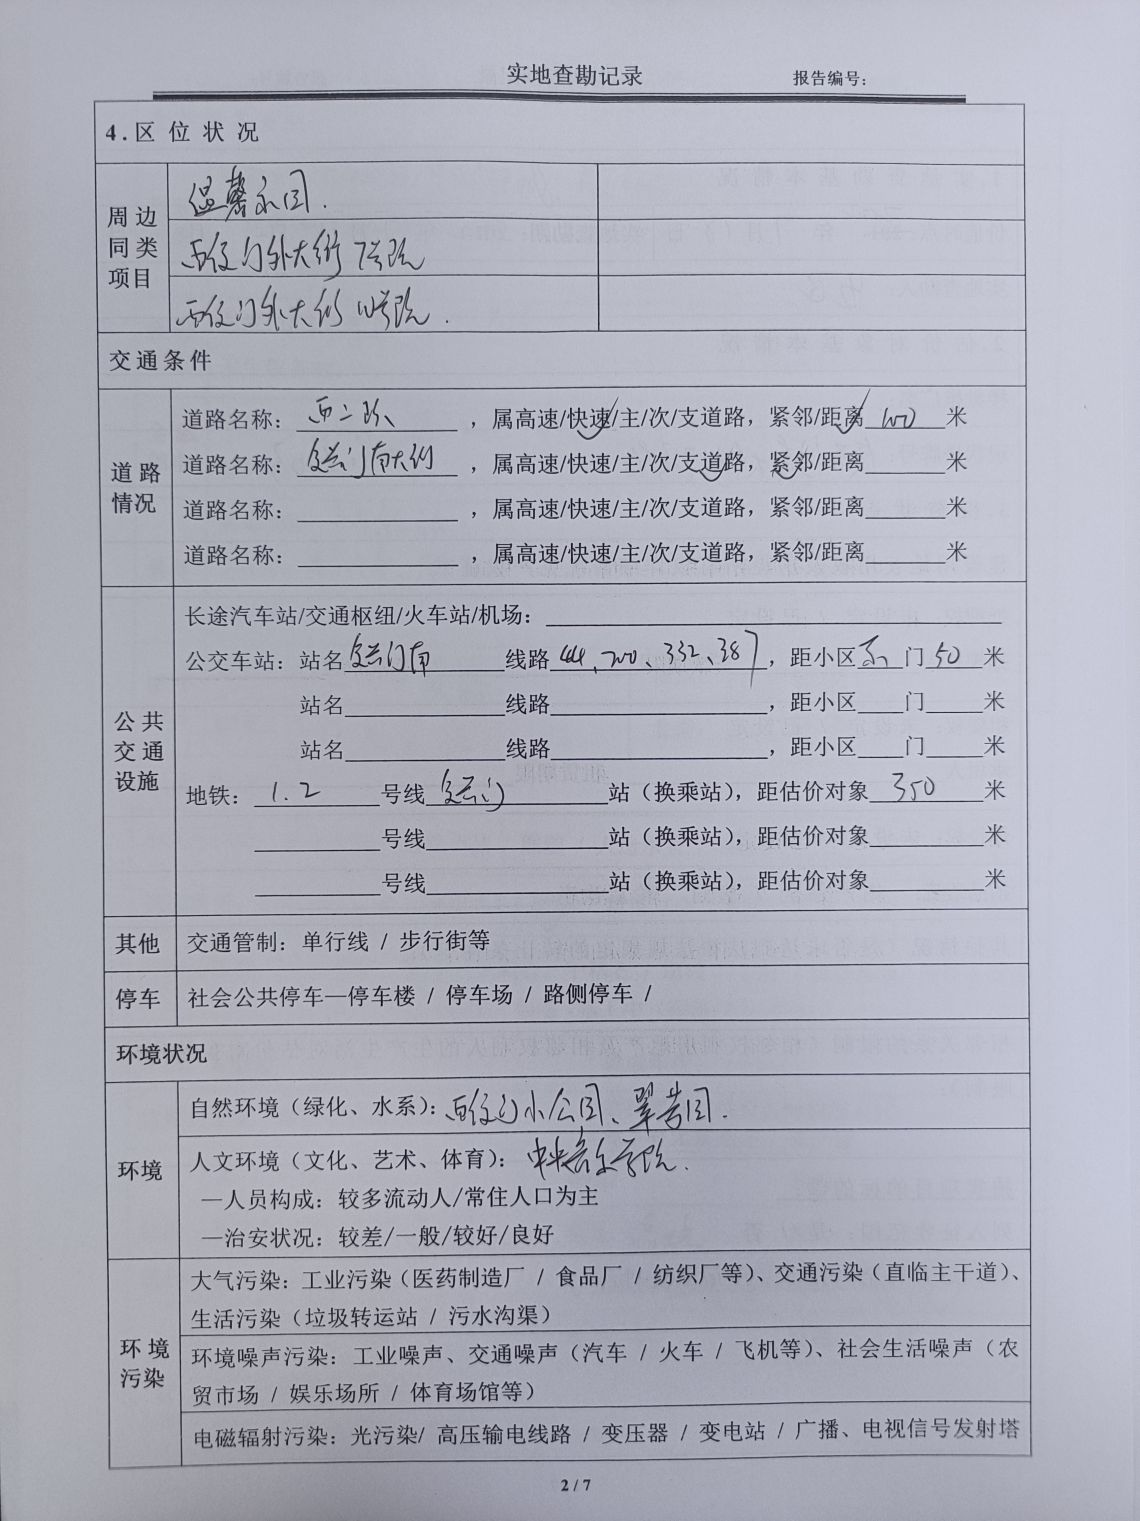 实地查勘记录 报告编号:
4.区位状况
周边同类项目
温馨家园.
西便门外大街7号院
西便门外大街10号院.
交通条件
道路情况
道路名称: 西二环 ，属高速/快速/主/次/支道路，紧邻/距离 100 米
道路名称: 复兴门南大街 ，属高速/快速/主/次/支道路，紧邻/距离______米
道路名称: ____________ ，属高速/快速/主/次/支道路，紧邻/距离______米
道路名称: ____________ ，属高速/快速/主/次/支道路，紧邻/距离______米
公共交通设施
长途汽车站/交通枢纽/火车站/机场: ____________
公交车站: 站名 复兴门南 线路 44、700、332、387 ，距小区 东 门 50 米
站名____________线路____________，距小区____门____米
站名____________线路____________，距小区____门____米
地铁: 1.2 号线 复兴门 站（换乘站），距估价对象 350 米
__________号线____________站（换乘站），距估价对象________米
__________号线____________站（换乘站），距估价对象________米
其他 交通管制: 单行线 / 步行街等
停车 社会公共停车—停车楼 / 停车场 / 路侧停车 /
环境状况
环境
自然环境（绿化、水系）: 西便门小公园、翠芳园.
人文环境（文化、艺术、体育）: 中央音乐学院.
—人员构成: 较多流动人/常住人口为主
—治安状况: 较差/一般/较好/良好
环境污染
大气污染: 工业污染（医药制造厂 / 食品厂 / 纺织厂等）、交通污染（直临主干道）、
生活污染（垃圾转运站 / 污水沟渠）
环境噪声污染: 工业噪声、交通噪声（汽车 / 火车 / 飞机等）、社会生活噪声（农
贸市场 / 娱乐场所 / 体育场馆等）
电磁辐射污染: 光污染/ 高压输电线路 / 变压器 / 变电站 / 广播、电视信号发射塔
2 / 7